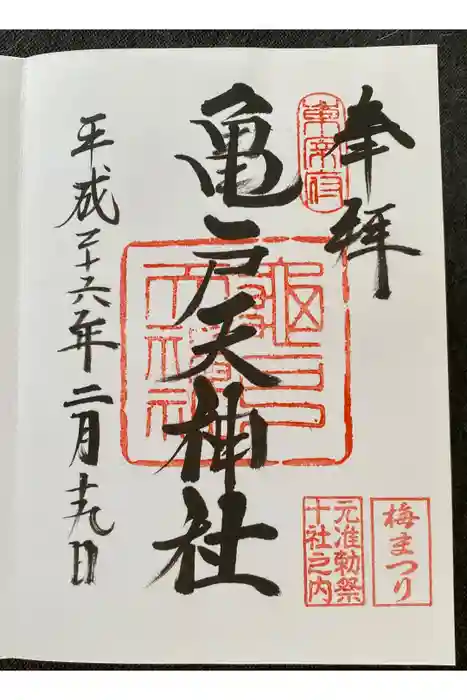 奉拝
東宰府
亀戸天神社
平成二十六年二月十九日
元准勅祭
十社之内
梅まつり